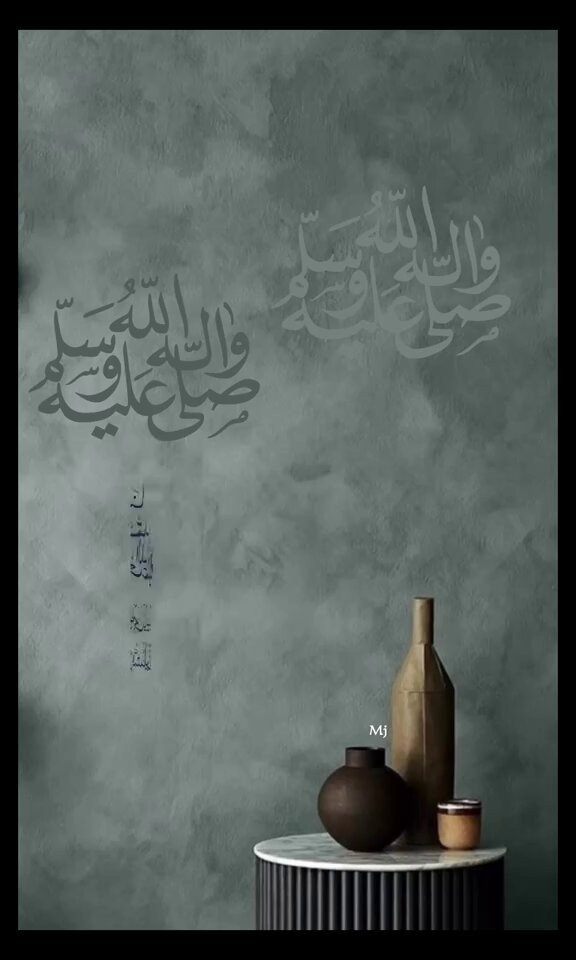 صلى الله عليه وآله وسلم
صلى الله عليه وآله وسلم
Mj